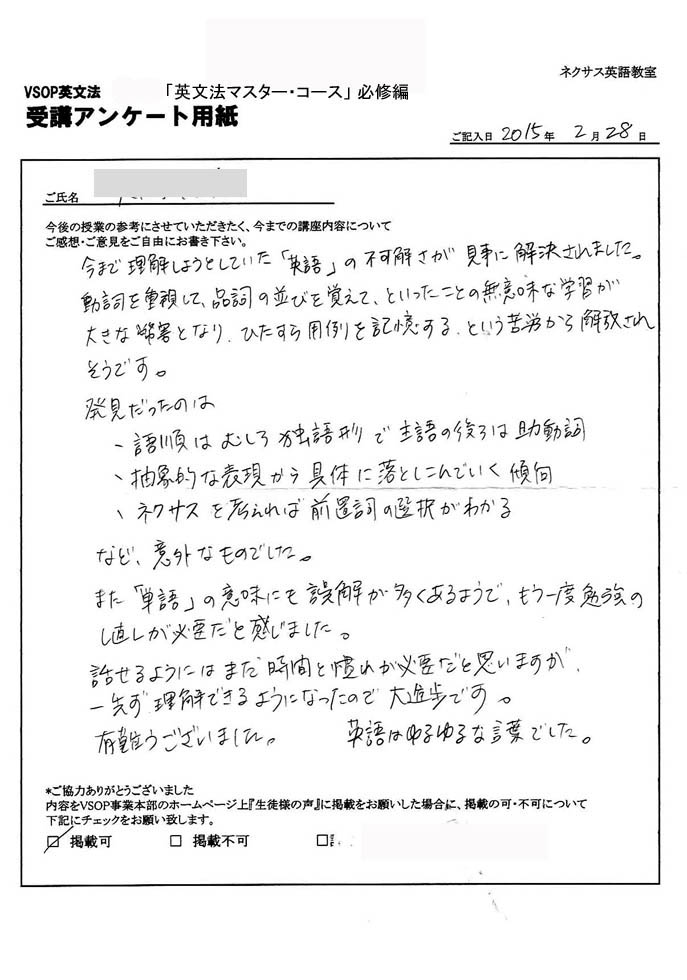 ネクサス英語教室
VSOP英文法 「英文法マスター・コース」必修編
受講アンケート用紙
ご記入日 2015年 2月 28日
ご氏名
今後の授業の参考にさせていただきたく、今までの講座内容について
ご感想・ご意見をご自由にお書き下さい。
今まで理解しようとしていた「英語」の不可解さが見事に解決されました。
動詞を重視して、品詞の並びを覚えて、といったことの無意味な学習が
大きな弊害となり、ひたすら用例を記憶する、という苦労から解放され
そうです。
発見だったのは
、語順はむしろ独語形で主語の後ろは助動詞
、抽象的な表現から具体に落としこんでいく傾向
、ネクサスを考えれば前置詞の選択がわかる
など、意外なものでした。
また「単語」の意味にも誤解が多くあるようで、もう一度勉強の
し直しが必要だと感じました。
話せるようにはまだ時間と慣れが必要だと思いますが、
一先ず理解できるようになったので大進歩です。
有難うございました。 英語はゆるゆるな言葉でした。
*ご協力ありがとうございました
内容をVSOP事業本部のホームページ上『生徒様の声』に掲載をお願いした場合に、掲載の可・不可について
下記にチェックをお願い致します。
掲載可 掲載不可